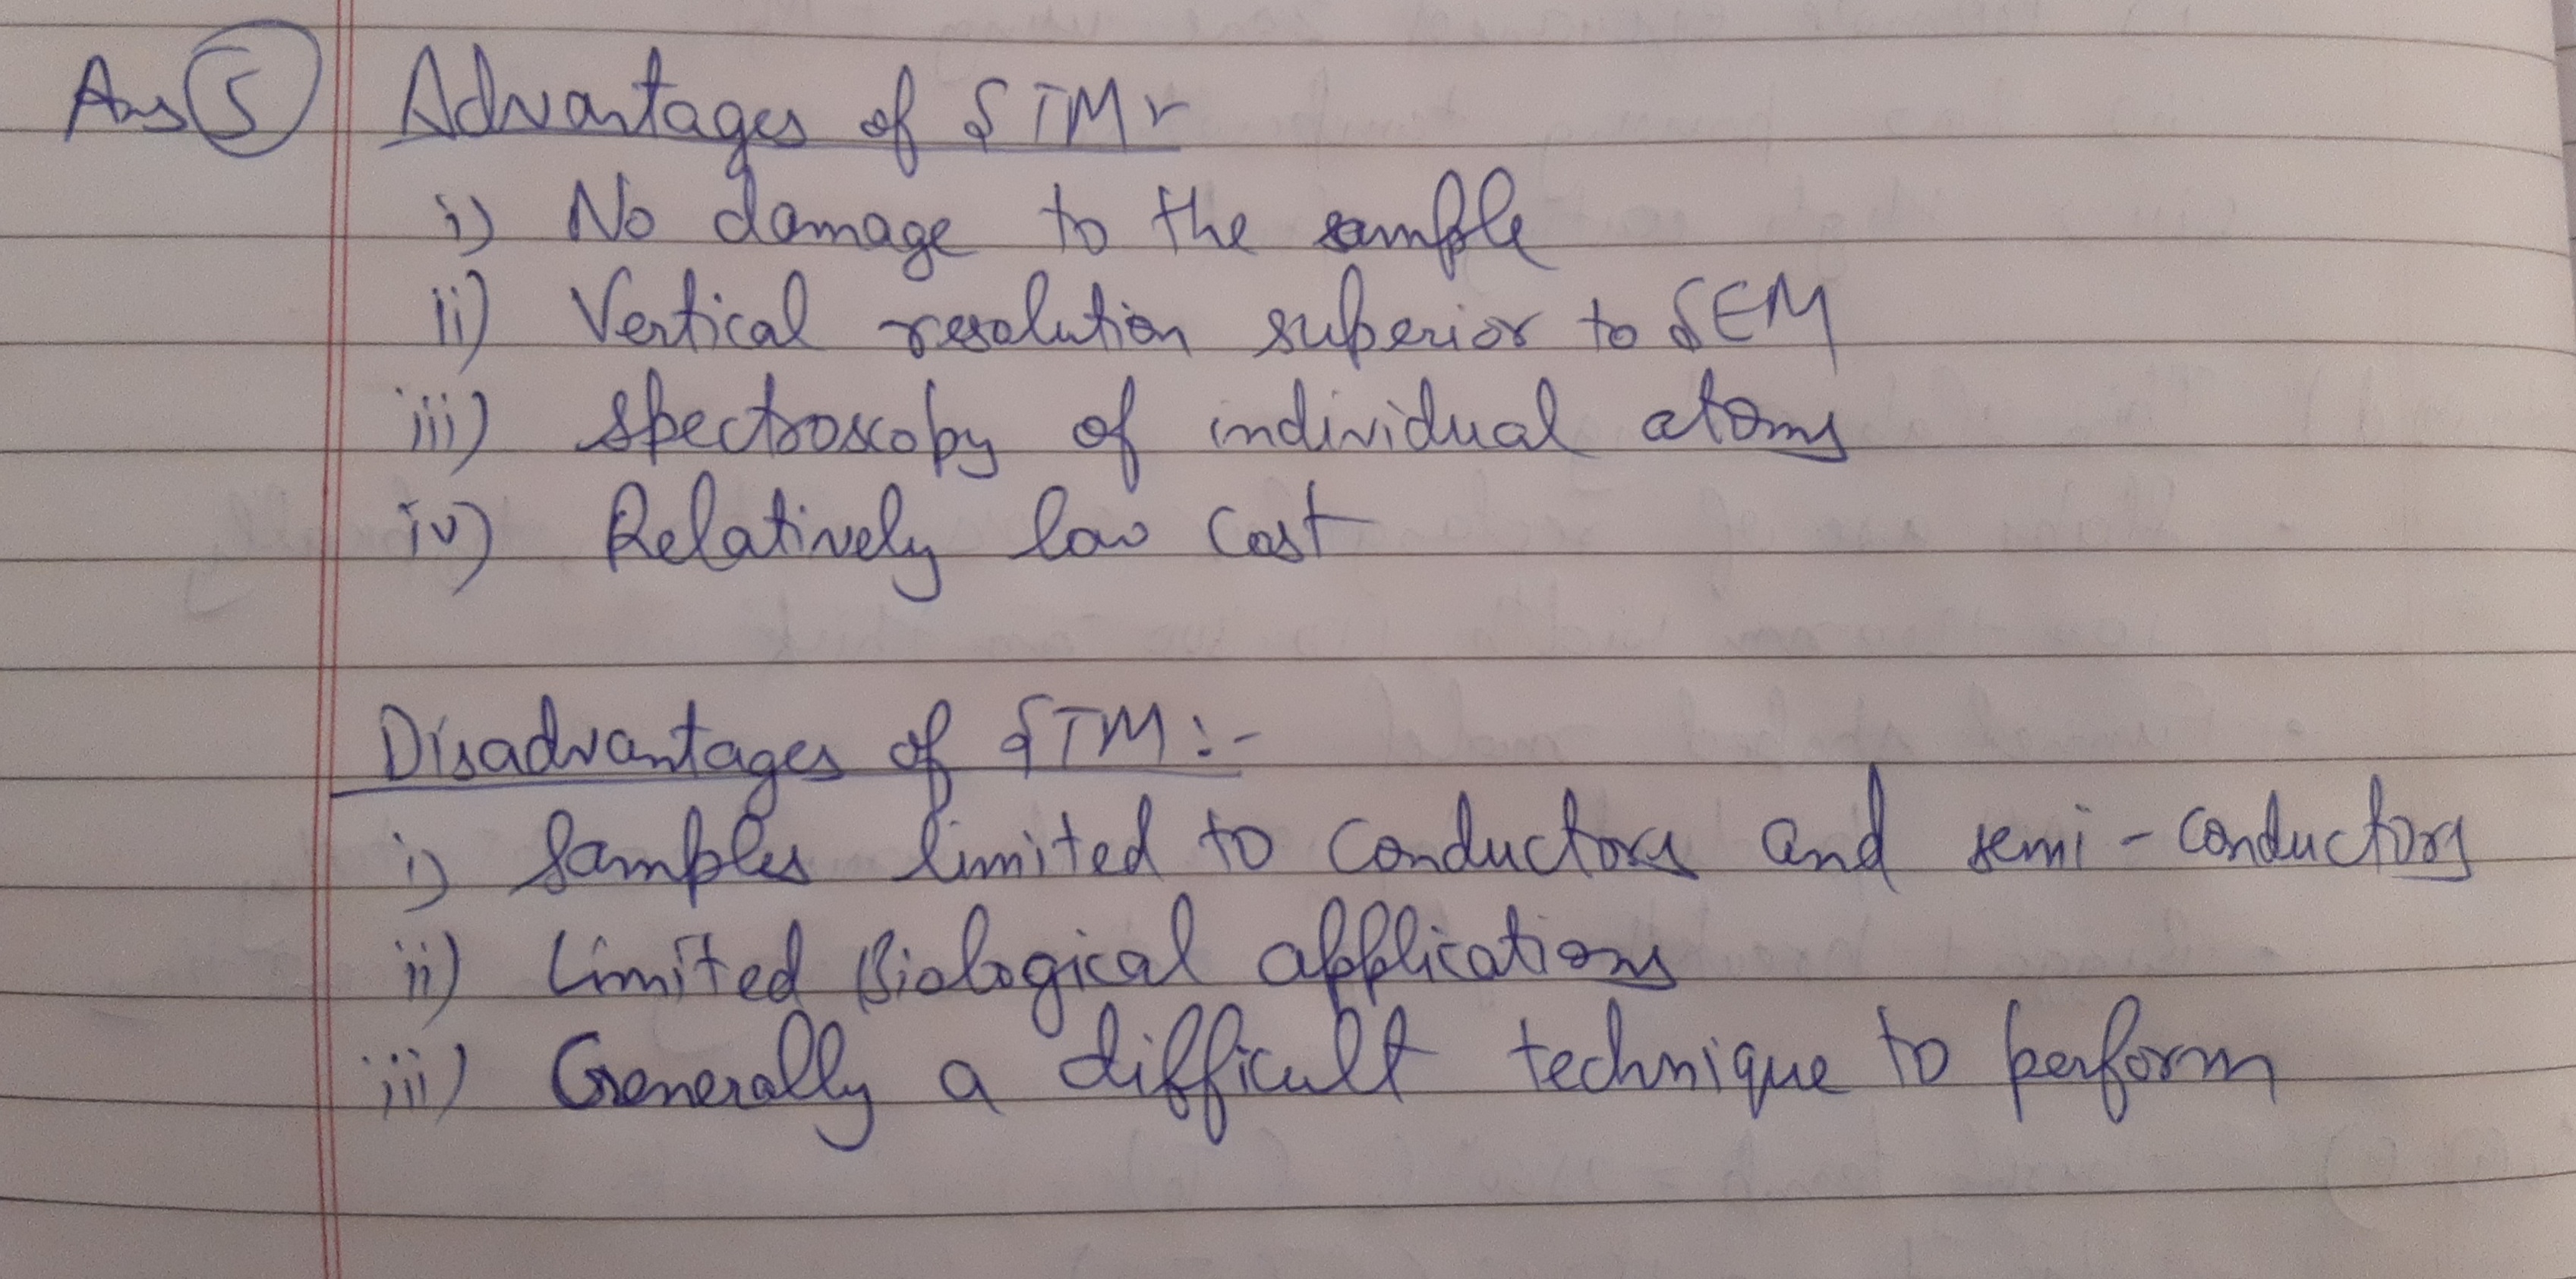 Ans 5 Advantages of STM:-
i) No damage to the sample
ii) Vertical resolution superior to SEM
iii) Spectroscopy of individual atoms
iv) Relatively low cost
Disadvantages of STM:-
i) Samples limited to conductors and semi-conductors
ii) Limited Biological applications
iii) Generally a difficult technique to perform